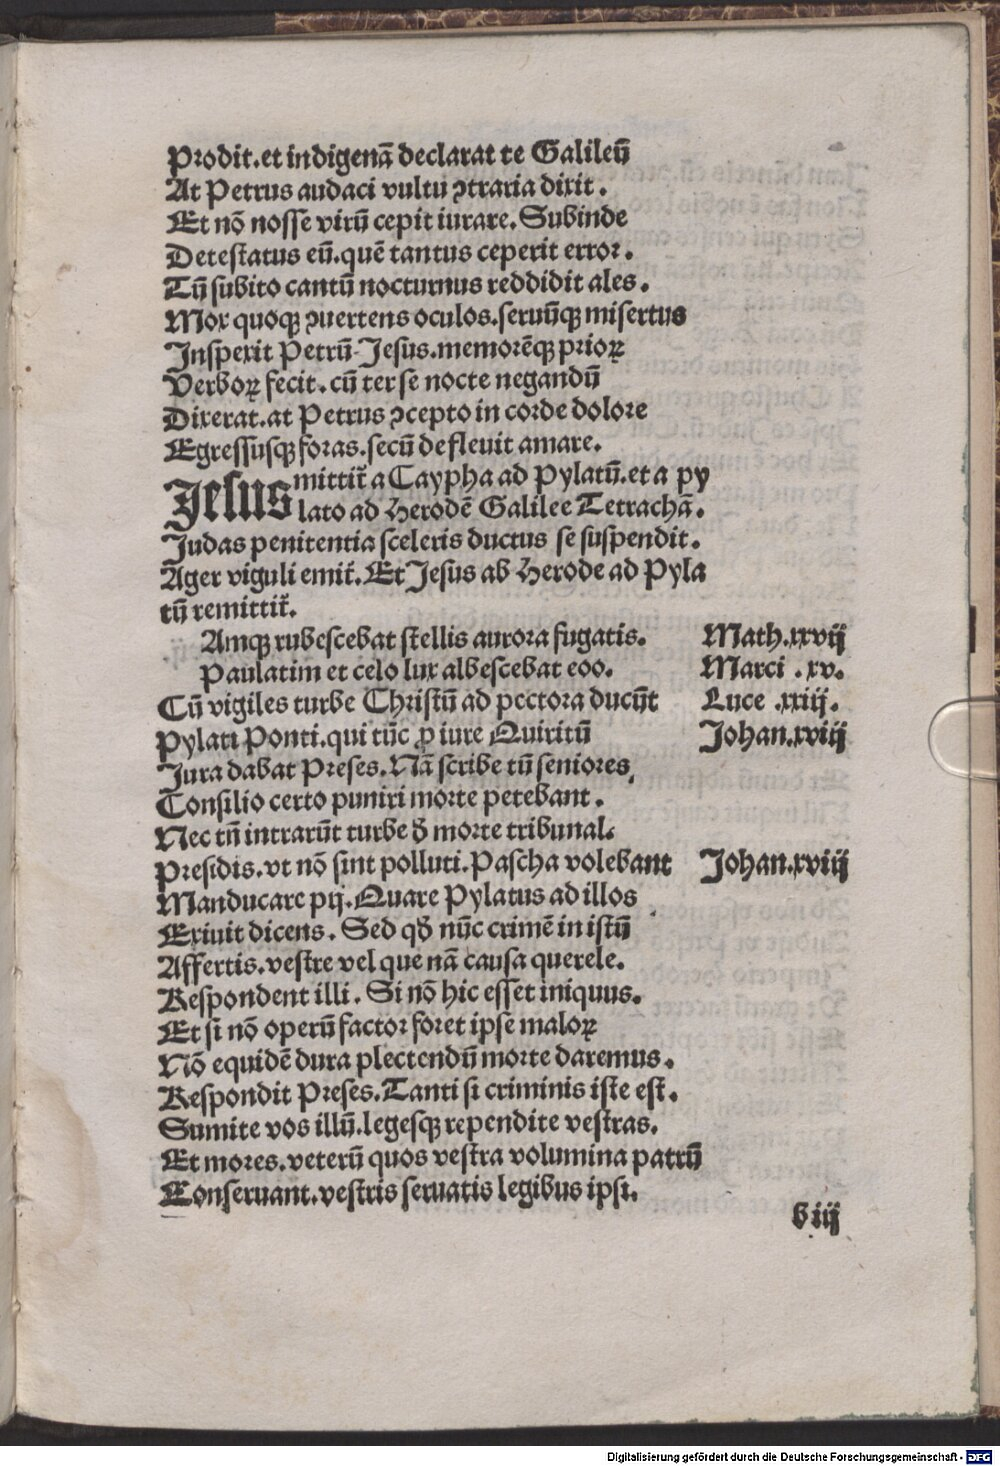 Prodit.et indigenã declarat te Galileũ
At Petrus audaci vultu ꝯtraria dixit.
Et nõ nosse virũ cepit iurare. Subinde
Detestatus eũ.quẽ tantus ceperit error.
Tũ subito cantũ nocturnus reddidit ales.
Mox quoqꝫ ꝯuertens oculos.seruũqꝫ misertus
Inspexit Petrũ Jesus.memorẽqꝫ prioꝝ
Verboꝝ fecit.cũ ter se nocte negandũ
Dixerat.at Petrus ꝯcepto in corde dolore
Egressusqꝫ foras.secũ defleuit amare.
Jesus mittit̃ a Caypha ad Pylatũ.et a py
lato ad Herodẽ Galilee Tetrachã.
Judas penitentia sceleris ductus se suspendit.
Ager viguli emit̃. Et Jesus ab Herode ad Pyla
tũ remittit̃.
Amqꝫ rubescebat stellis aurora fugatis. Math.xxvij
Paulatim et celo lux albescebat eoo. Marci .xv.
Cũ vigiles turbe Christũ ad pectora ducũt Luce .xxiij.
Pylati Ponti.qui tũc ꝓ iure Quiritũ Johan.xviij
Jura dabat Preses. Nã scribe tũ seniores
Consilio certo puniri morte petebant.
Nec tñ intrarũt turbe ð morte tribunal.
Presidis.vt nõ sint polluti. Pascha volebant Johan.xviij
Manducare pij. Quare Pylatus ad illos
Exiuit dicens. Sed qð nũc crimẽ in istũ
Affertis.vestre vel que nã causa querele.
Respondent illi. Si nõ hic esset iniquus.
Et si nõ operũ factor foret ipse maloꝝ
Nõ equidẽ dura plectendũ morte daremus.
Respondit Preses. Tanti si criminis iste est.
Sumite vos illũ.legesqꝫ rependite vestras.
Et mores.veterũ quos vestra volumina patrũ
Conseruant.vestris seruatis legibus ipsi.
b iij
Digitalisierung gefördert durch die Deutsche Forschungsgemeinschaft - DFG